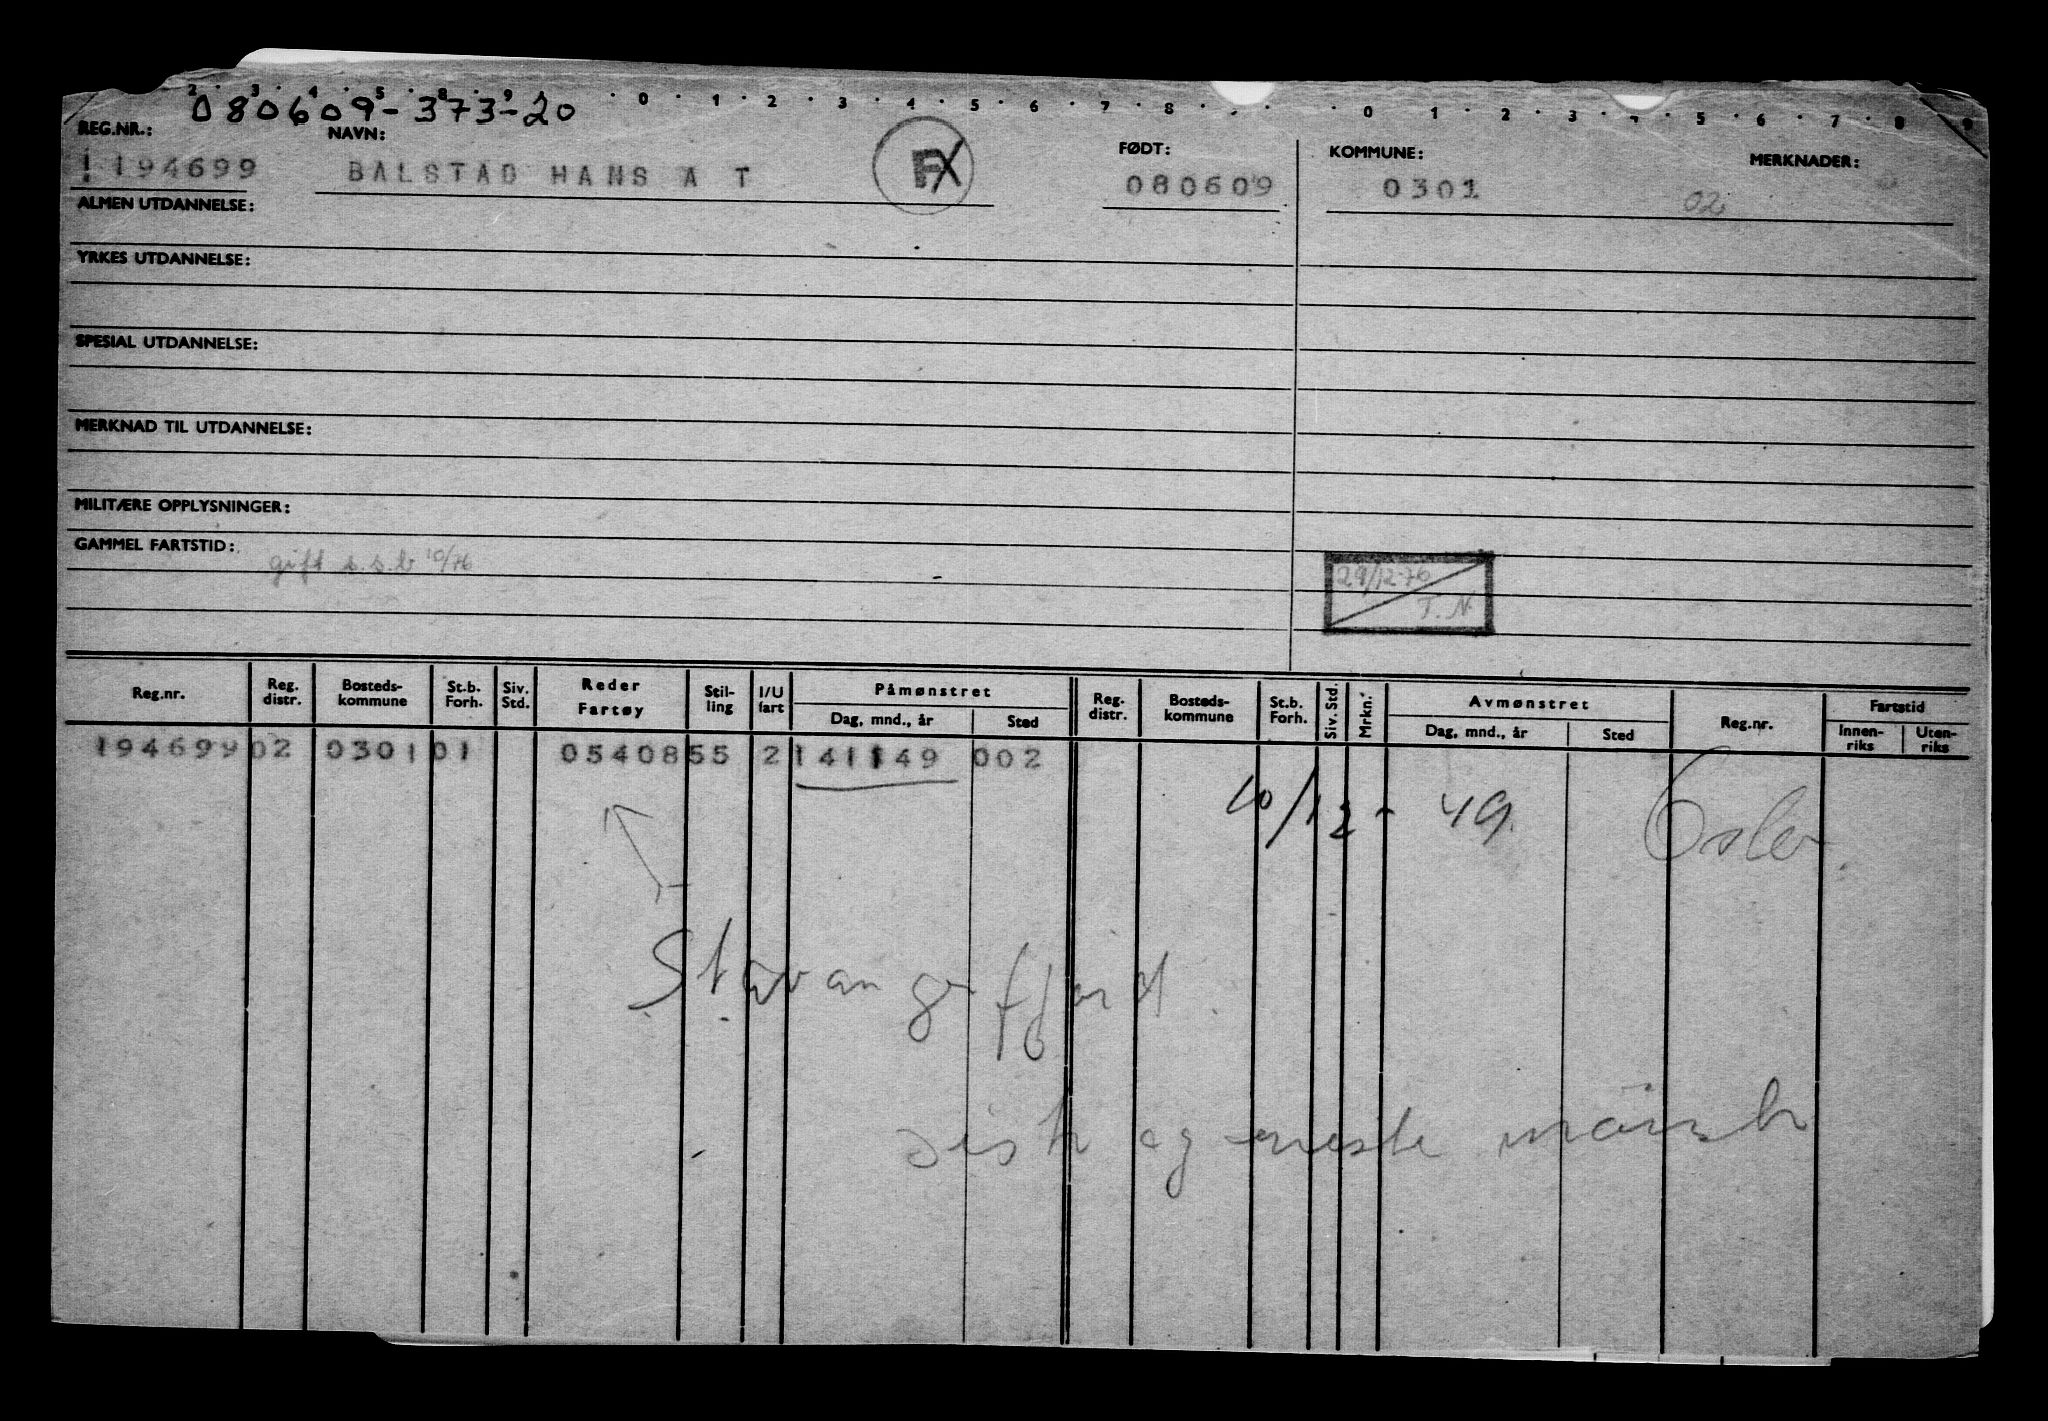 2 3 4 5 8 9 0 1 2 3 4 5 6 7 8 0 1 2 3 5 6 7 8 9
080609-373-20
REG.NR.: NAVN: FØDT: KOMMUNE: MERKNADER:
194699 BALSTAD HANS A T FX 080609 0301 02
ALMEN UTDANNELSE:
YRKES UTDANNELSE:
SPESIAL UTDANNELSE:
MERKNAD TIL UTDANNELSE:
MILITÆRE OPPLYSNINGER:
GAMMEL FARTSTID:
gift s.s.b 10/76
29/12-76
T.N
Reg.nr. Reg. distr. Bosteds-kommune St.b. Forh. Siv. Std. Reder Fartøy Stil-ling I/U fart Påmønstret Dag, mnd., år Sted Reg. distr. Bosteds-kommune St.b. Forh. Siv. Std. Mrkn. Avmønstret Dag, mnd., år Sted Reg.nr. Fartstid Innen-riks Uten-riks
194699 02 0301 01 05408 55 2 141149 002
10/12-49 Oslo
Stavangerfjord
sist og eneste mönstr